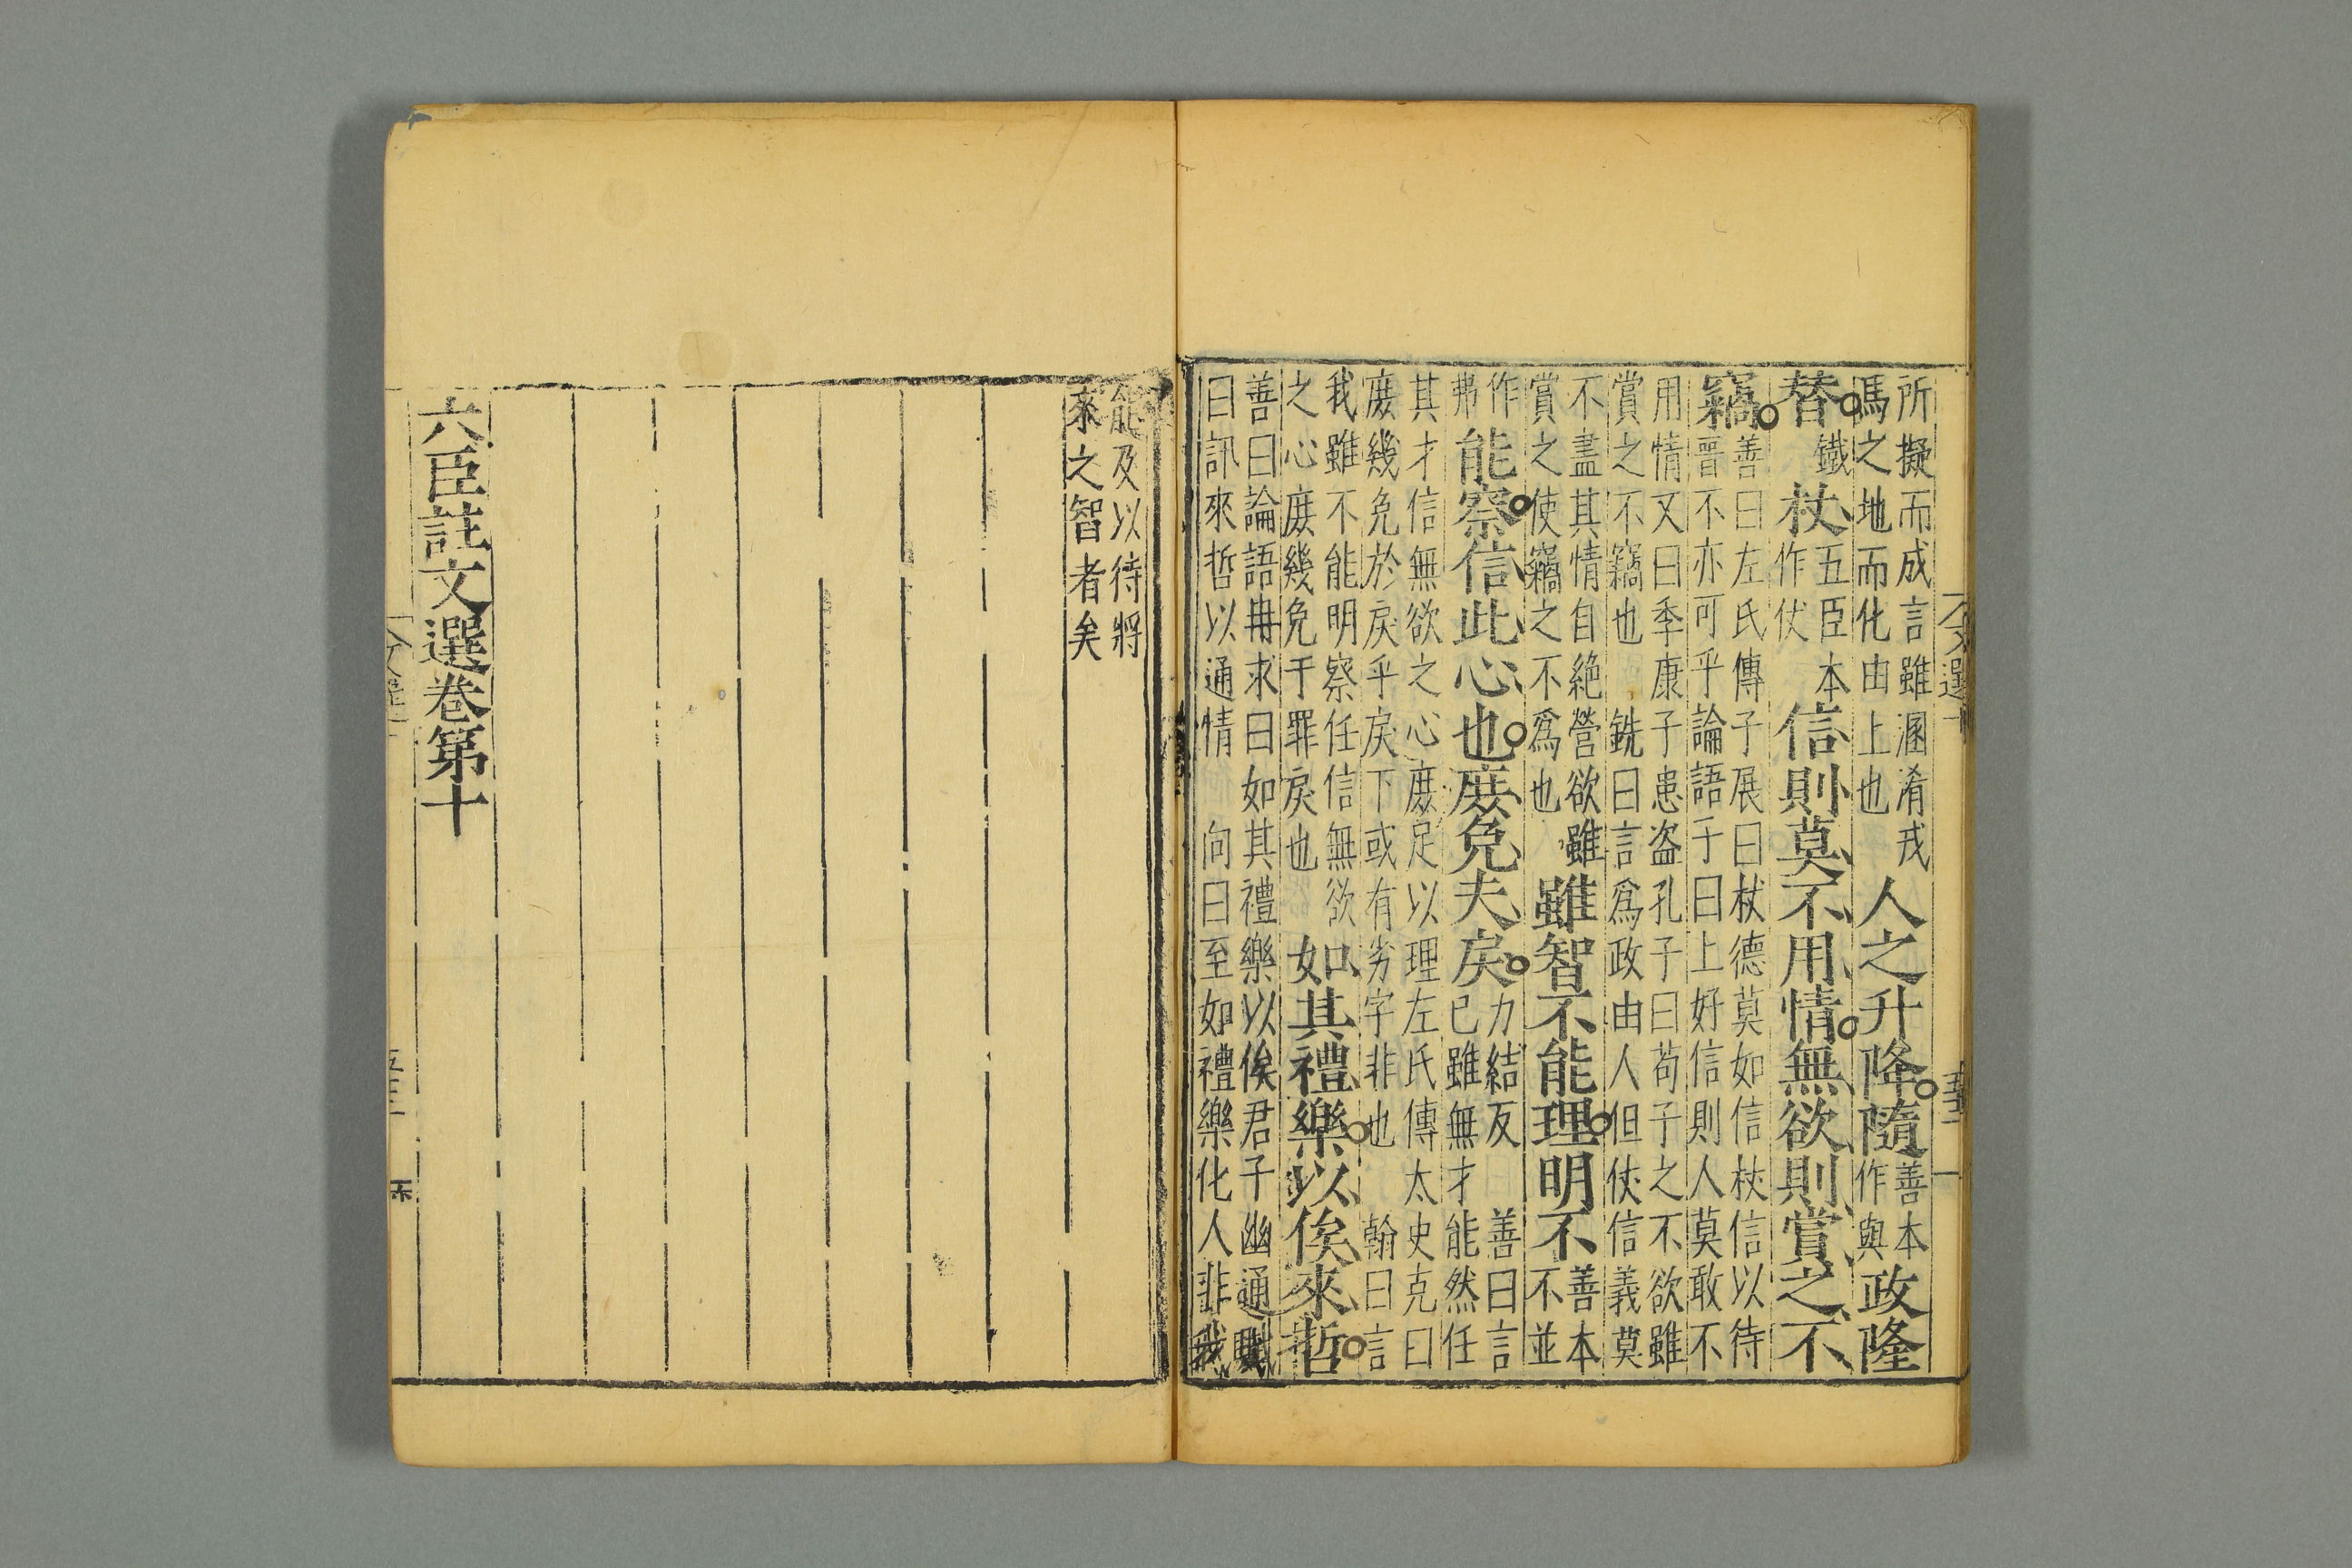 所擬而成言雖溷淆戎馮之地而化由上也人之升降。隨善本作與政隆
替。鐵杖五臣本作仗信則莫不用情。無欲則賞之不
竊。善曰左氏傳子展曰杖德莫如信杖信以待晋不亦可乎論語子曰上好信則人莫敢不
用情又曰季康子患盗孔子曰苟子之不欲雖賞之不竊也 銑曰言爲政由人但仗信義莫
不盡其情自絶營欲雖賞之使竊之不爲也雖智不能理。明不善本不並
作弗能察。信此心也。庶免夫戾。力結反 善曰言已雖無才能然任
其才信無欲之心庶足以理左氏傳太史克曰庶幾免於戾乎戾下或有劣字非也 翰曰言
我雖不能明察任信無欲之心庶幾免于罪戾也如其禮樂。以俟來哲。
善曰論語冉求曰如其禮樂以俟君子幽通賦曰訊來哲以通情 向曰至如禮樂化人非我
能及以待將來之智者矣
六臣註文選卷第十